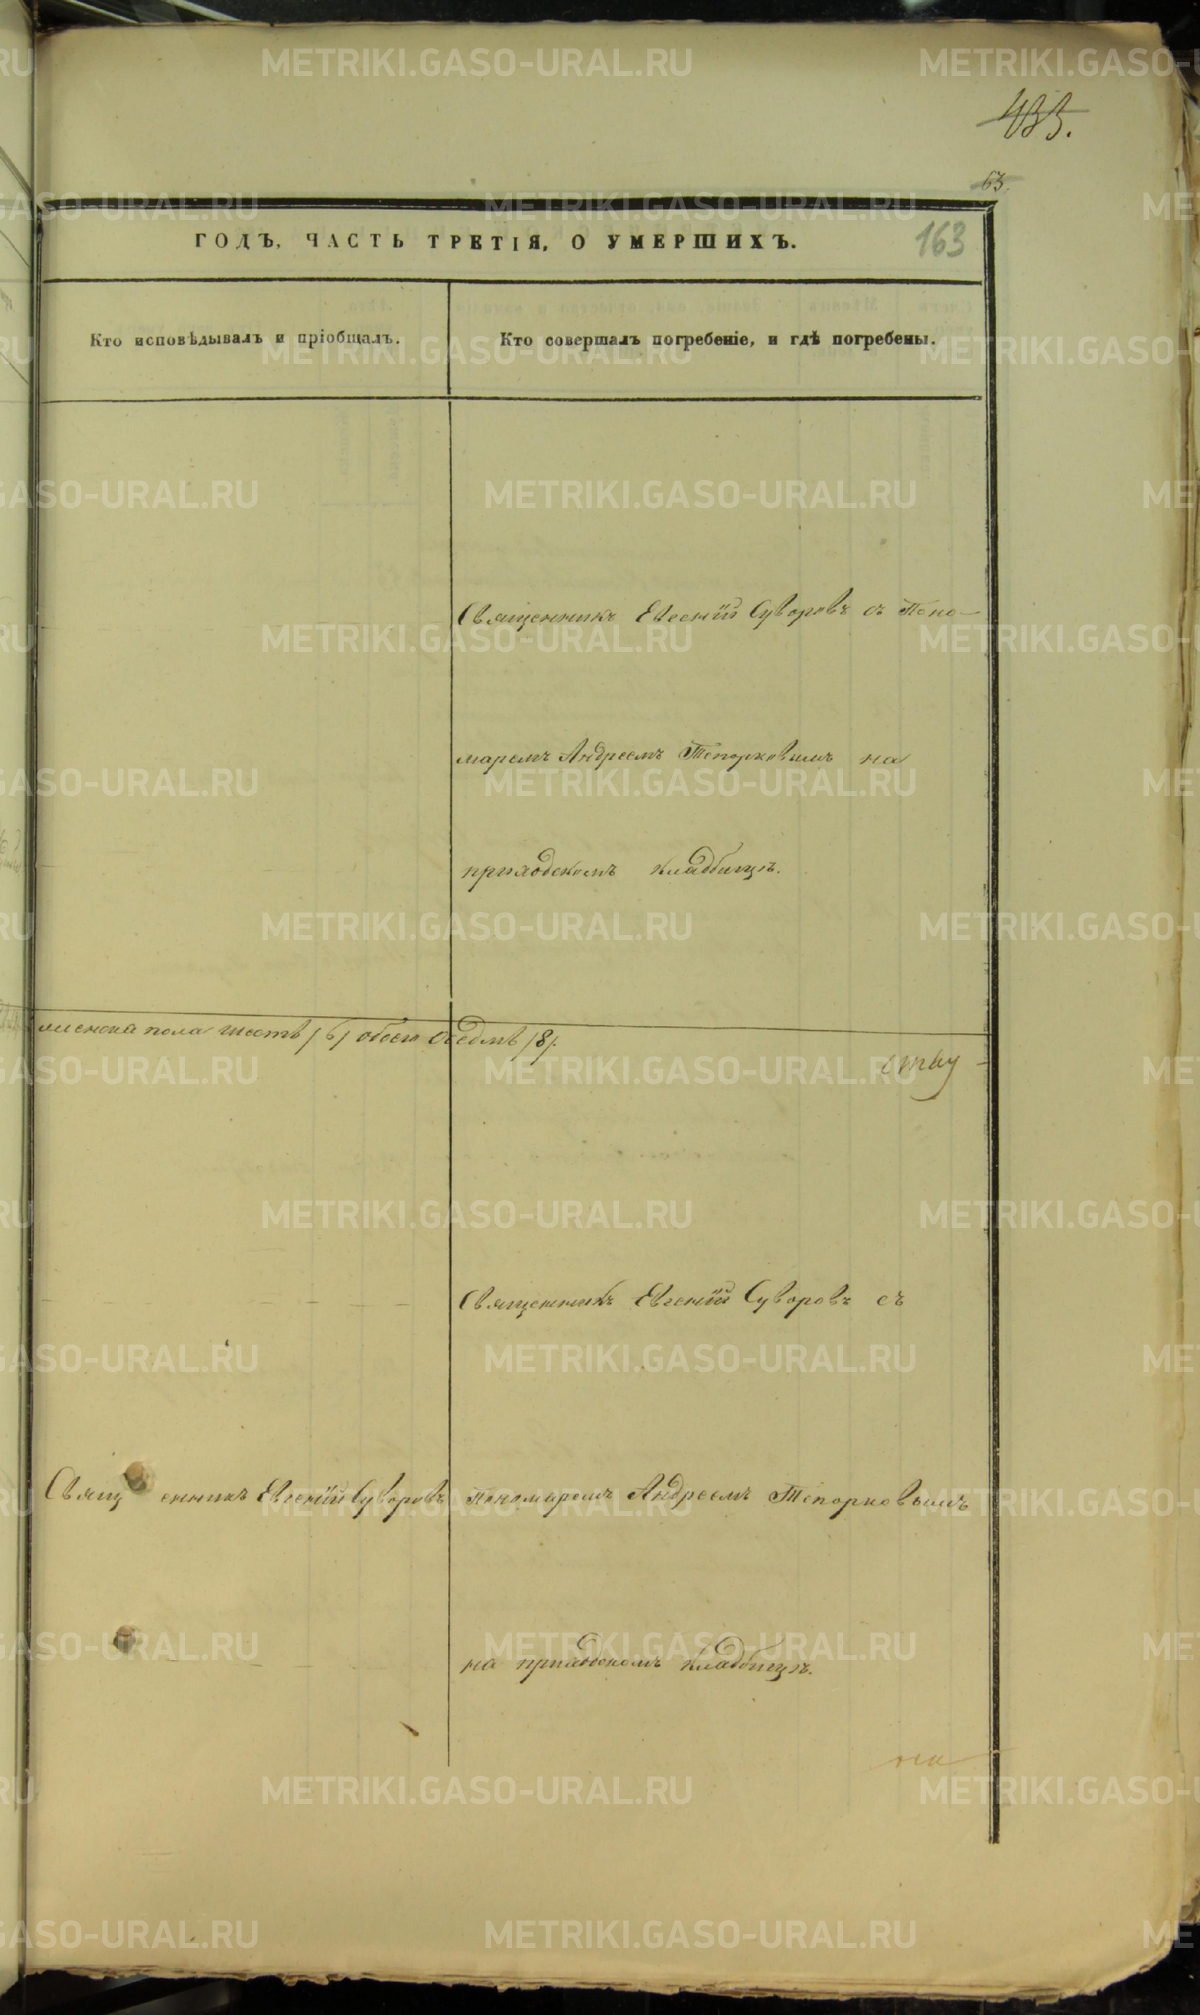 433.
63.
ГОДЪ, ЧАСТЬ ТРЕТІЯ, О УМЕРШИХЪ.
163
Кто исповѣдывалъ и пріобщалъ.
Кто совершалъ погребеніе, и гдѣ погребены.
Священникъ Евгеній Суворовъ съ Поно-
маремъ Андреемъ Топорковымъ на
приходскомъ кладбищѣ.
женска пола шесть /6/ обоего осемь /8/.
ству
Священникъ Евгеній Суворовъ съ
Священникъ Евгеній Суворовъ
Пономаремъ Андреемъ Топорковымъ
на приходскомъ кладбищѣ.
на
METRIKI.GASO-URAL.RU